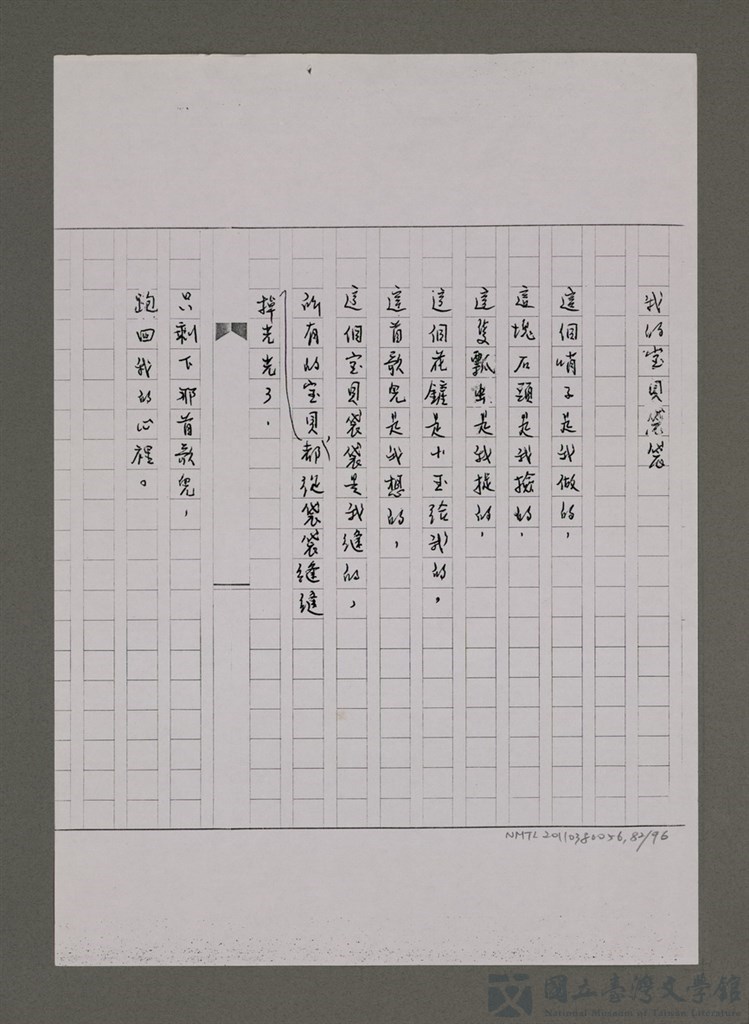 我的宝貝袋袋
這個哨子是我做的,
這塊石頭是我撿的,
這隻瓢虫是我捉的,
這個花鏟是小玉給我的,
這首歌兒是我想的,
這個宝貝袋袋是我縫的,
所有的宝貝都從袋袋縫縫
掉光光了.
只剩下那首歌兒,
跑回我的心裡。
NMTL 20110380056,82/96
國立臺灣文學館
National Museum of Taiwan Literature